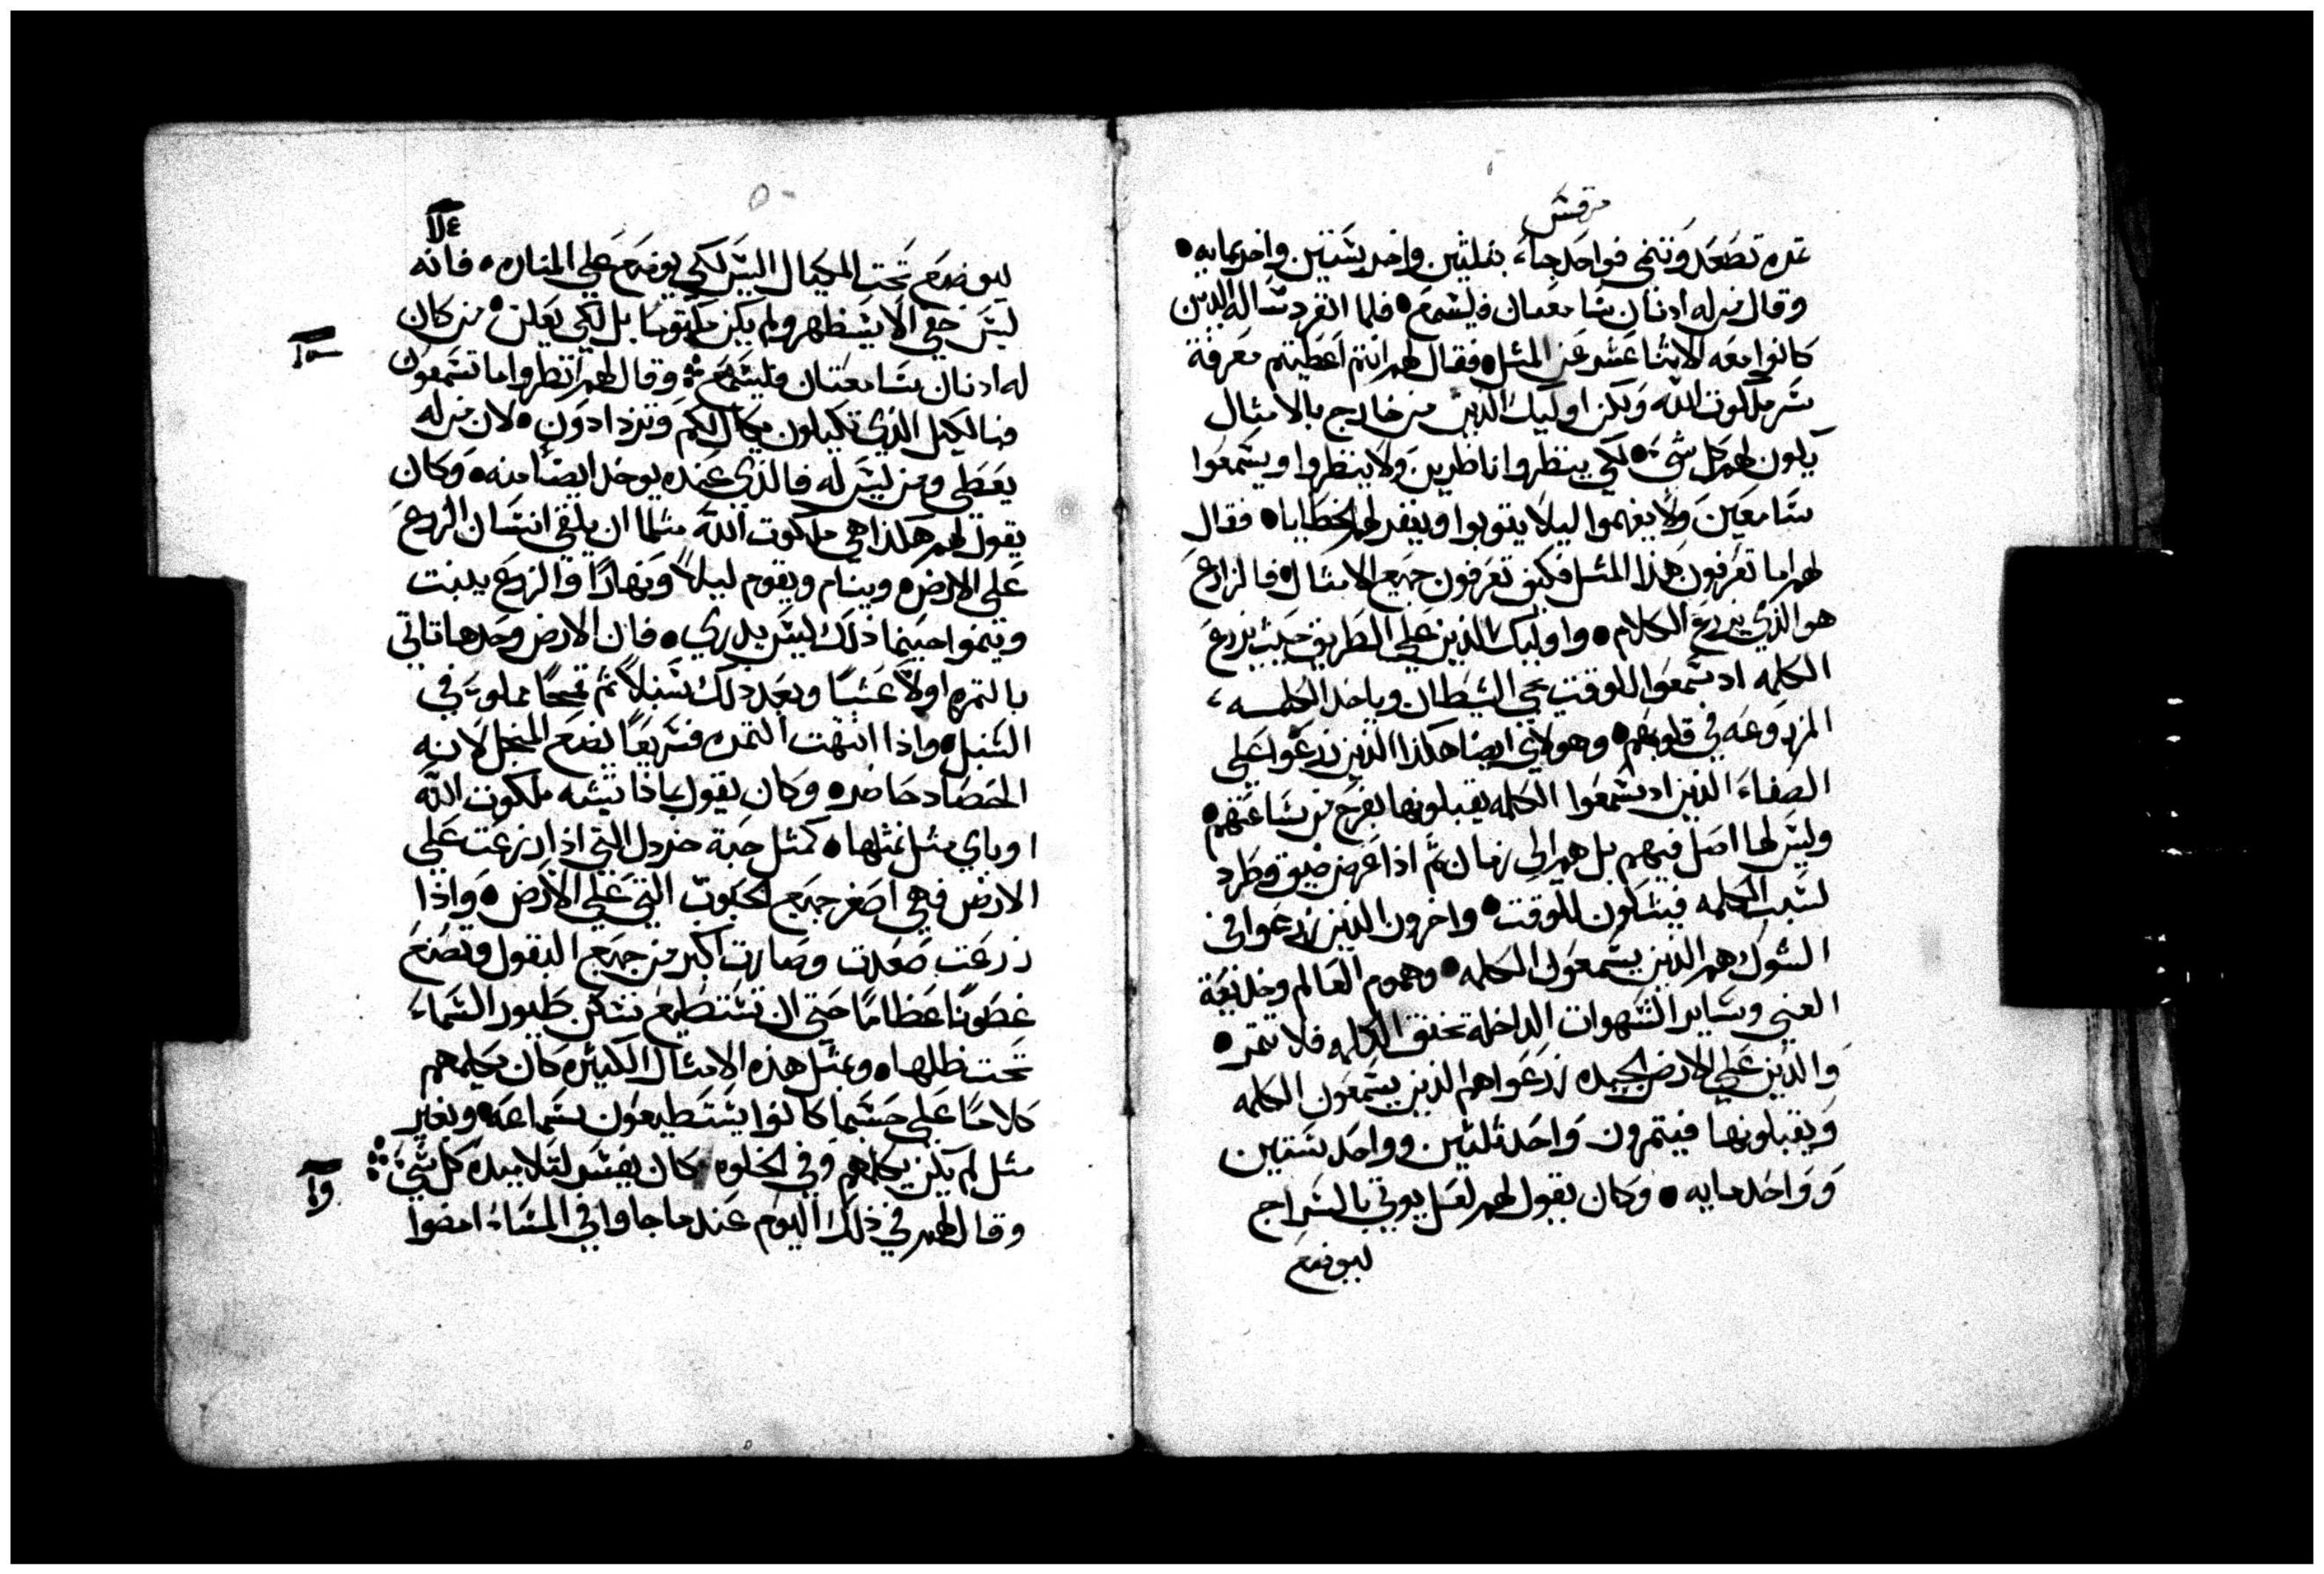 مرقس
تمره تصعد وتنمى فواحد جاء بثلثين واخر بستين واخر بمايه
وقال من له ادنان سامعتان فليسمع فلما انفرد ساله الدين
كانوا معه الاثنا عشر عن المثل فقال لهم انتم اعطيتم معرفة
سر ملكوت الله ولكن اوليك الدين من خارج بالامثال
يكون لهم كل شي لكي ينظروا ناظرين ولا ينظروا ويسمعوا
سامعين ولا يفهموا ليلا يتوبوا ويغفر لهم الخطايا فقال
لهم اما تعرفون هذا المثل فكيف تعرفون جميع الامثال فالزارع
هو الذي يزرع الكلام واوليك الذين على الطريق حيث يزرع
الكلمه اد سمعوا للوقت يجي الشيطان وياخد الكلمه
المزروعه في قلوبهم وهولاي ايضا هكذا الذين زرعوا على
الصفاء الذين اد سمعوا الكلمه يقبلونها بفرح من ساعتهم
وليس لها اصل فيهم بل هم الى زمان ثم اذا عرض ضيق وطرد
لسبب الكلمه فيشكون للوقت واخرون الذين زرعوا في
الشوك هم الذين يسمعون الكلمه وهموم العالم وخديعة
الغني وساير الشهوات الداخلة تخنق الكلمه فلا تتمر
والذين على الارض الجيده زرعوا هم الذين يسمعون الكلمه
ويقبلونها فيتمرون واحد ثلثين وواحد ستين
وواحد مايه وكان يقول لهم لعل يوتي بالسراج
ليوضع
١٤
ليوضع تحت المكيال اليس لكي يوضع على المناره فانه
ليس خفي الا يستظهر ولم يكن مكتوما بل لكي يعلن من كان
١٥
له ادنان سامعتان فليسمع وقال لهم انظروا ما تسمعون
فبالكيل الذي تكيلون يكال لكم وتزدادون لان من له
يعطى ومن ليس له فالذي عنده يوخد ايضا منه وكان
يقول لهم هكذا هي ملكوت الله مثلما ان يلقي انسان الزرع
على الارض وينام ويقوم ليلا ونهارا والزرع ينبت
وتنموا حينما ذلك ليس يدري فان الارض وحدها تاتي
بالتمره اولا عشبا وبعد دلك سنبلا ثم قمحا مملو في
السنبل واذا انتهت التمره فسريعا يضع المنجل لانه
الحصاد حاضر وكان يقول بماذا نشبه ملكوت الله
او باي مثل نمثلها كمثل حبة خردل التي اذا زرعت على
الارض فهي اصغر جميع الحبوب التي على الارض واذا
زرعت صعدت وصارت اكبر من جميع البقول وتصنع
غصونا عظاما حتى ان تستطيع تسكن طيور السماء
تحت ظلها وبمثل هذه الامثال الكثيره كان يكلمهم
كلاما على حسبما كانوا يستطيعون سماعه وبغير
مثل لم يكن يكلمهم وفي الخلوه كان يفسر لتلاميده كل شي
١٦
وقال لهم في ذلك اليوم عندما جاوا في المساء امضوا